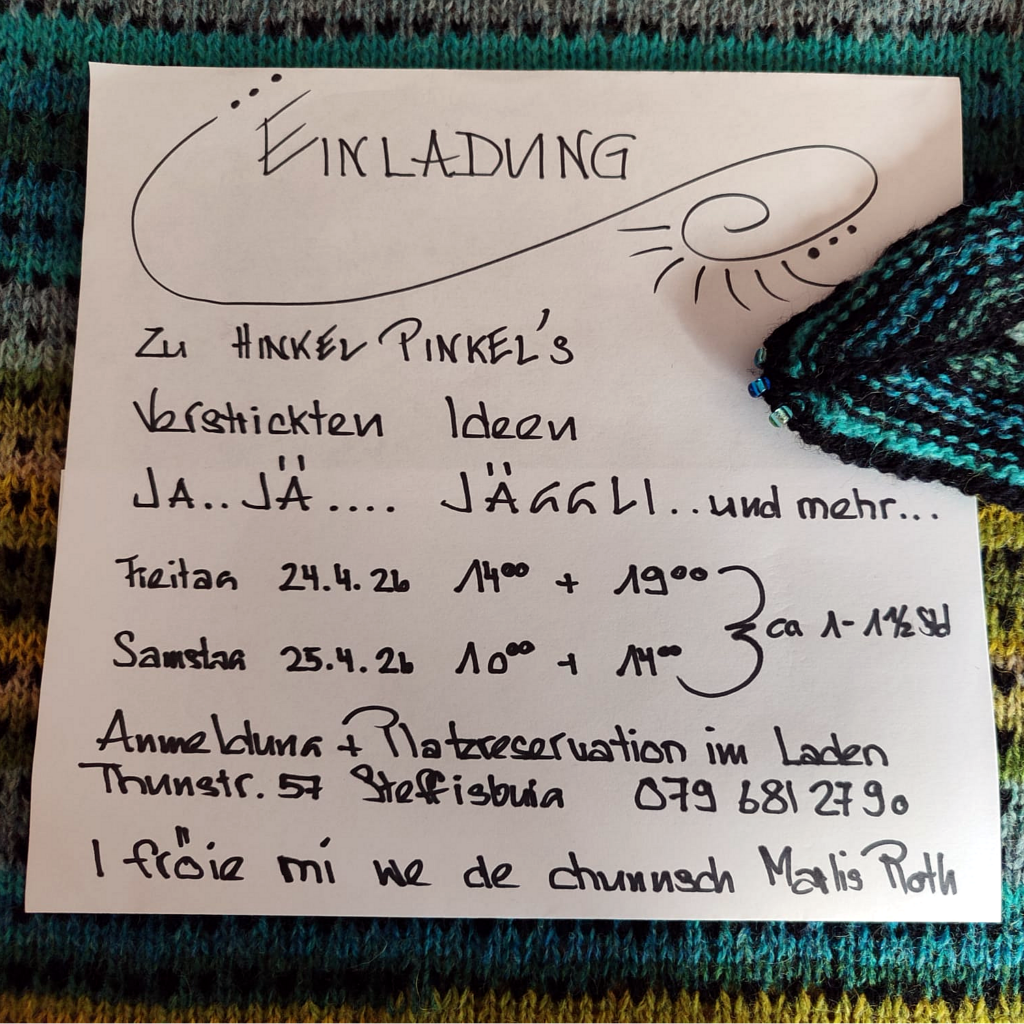 EINLADUNG
Zu HINKEL PINKEL's
Verstrickten Ideen
JA..JÄ.... JÄGGLI..und mehr...
Freitag 24.4.26 14⁰⁰ + 19⁰⁰
Samstag 25.4.26 10⁰⁰ + 14⁰⁰
ca 1-1½ Std
Anmeldung + Platzreservation im Laden
Thunstr. 57 Steffisburg 079 681 27 90
I fröie mi we de chunnsch Marlis Roth